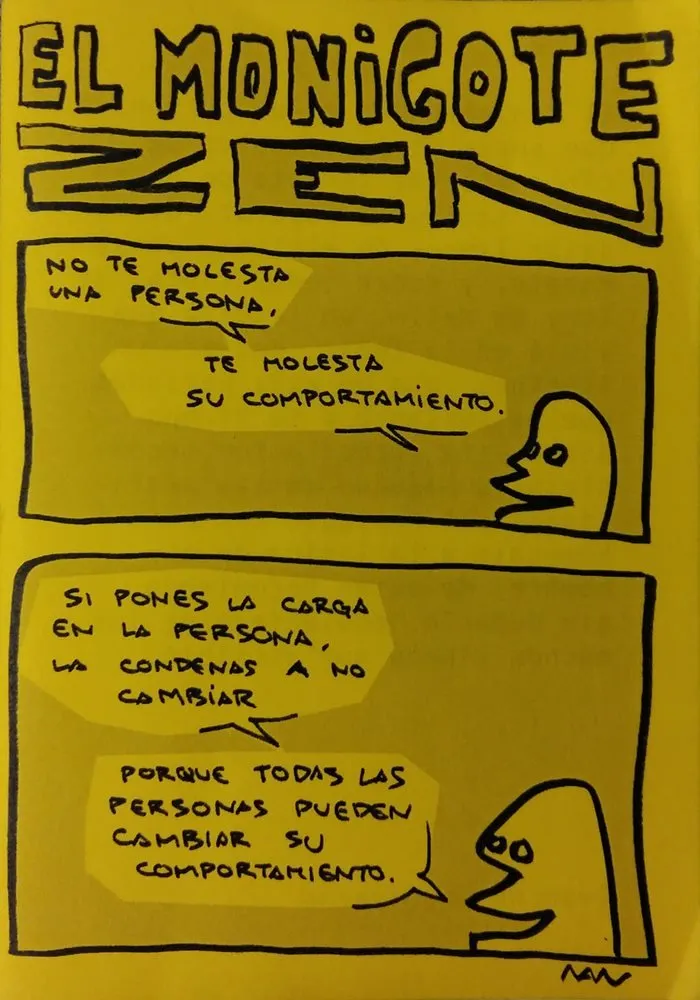 EL MONIGOTE
ZEN
NO TE MOLESTA
UNA PERSONA,
TE MOLESTA
SU COMPORTAMIENTO.
SI PONES LA CARGA
EN LA PERSONA,
LA CONDENAS A NO
CAMBIAR
PORQUE TODAS LAS
PERSONAS PUEDEN
CAMBIAR SU
COMPORTAMIENTO.